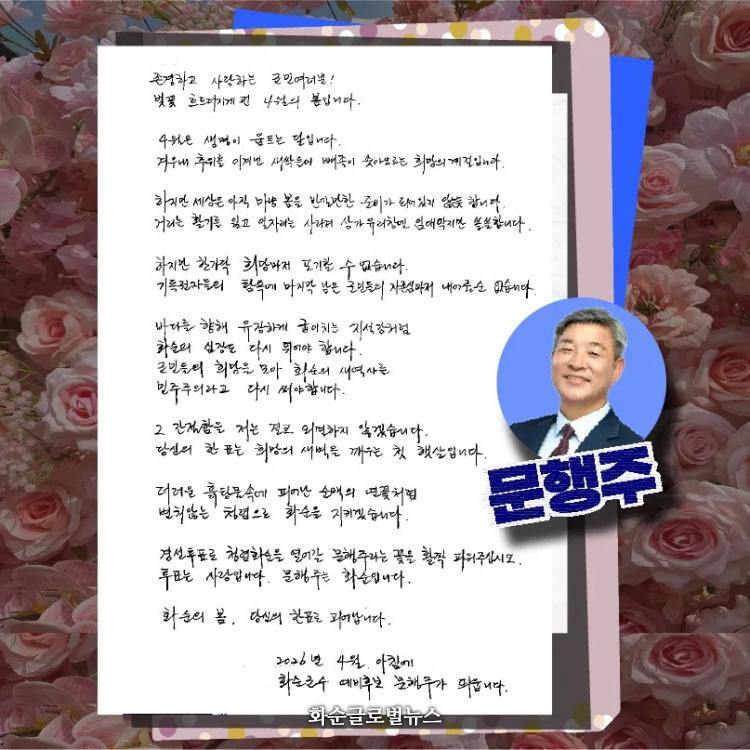 존경하고 사랑하는 군민여러분!
벚꽃 흐드러지게 핀 4월의 봄입니다.
4월은 생명이 움트는 달입니다.
겨우내 추위를 이겨낸 새싹들이 삐죽이 솟아오르는 희망의 계절입니다.
하지만 세상은 아직 마냥 봄을 반길만한 준비가 되어있지 않은듯 합니다.
거리는 활기를 잃고 일자리는 사라져 상가유리창엔 임대딱지만 쓸쓸합니다.
하지만 한가닥 희망마저 포기할 수 없습니다.
기득권자들의 탐욕에 마지막 남은 군민들의 자존심마저 내어줄순 없습니다.
바다를 향해 유장하게 굽이치는 지석강처럼
화순의 심장도 다시 뛰어야 합니다.
군민들의 희망을 모아 화순의 새역사를
민주주의라고 다시 써야합니다.
그 간절함을 저는 결코 외면하지 않겠습니다.
당신의 한 표는 희망의 새벽을 깨우는 첫 햇살입니다.
더러운 흙탕물속에 피어난 순백의 연꽃처럼
변치않는 청렴으로 화순을 지키겠습니다.
경선투표로 청렴화순을 열어갈 문행주라는 꽃을 활짝 피워주십시오.
투표는 사랑입니다. 문행주는 화순입니다.
화순의 봄, 당신의 한표로 피어납니다.
2026년 4월 아침에
화순군수 예비후보 문행주가 띄웁니다.
문행주
화순글로벌뉴스